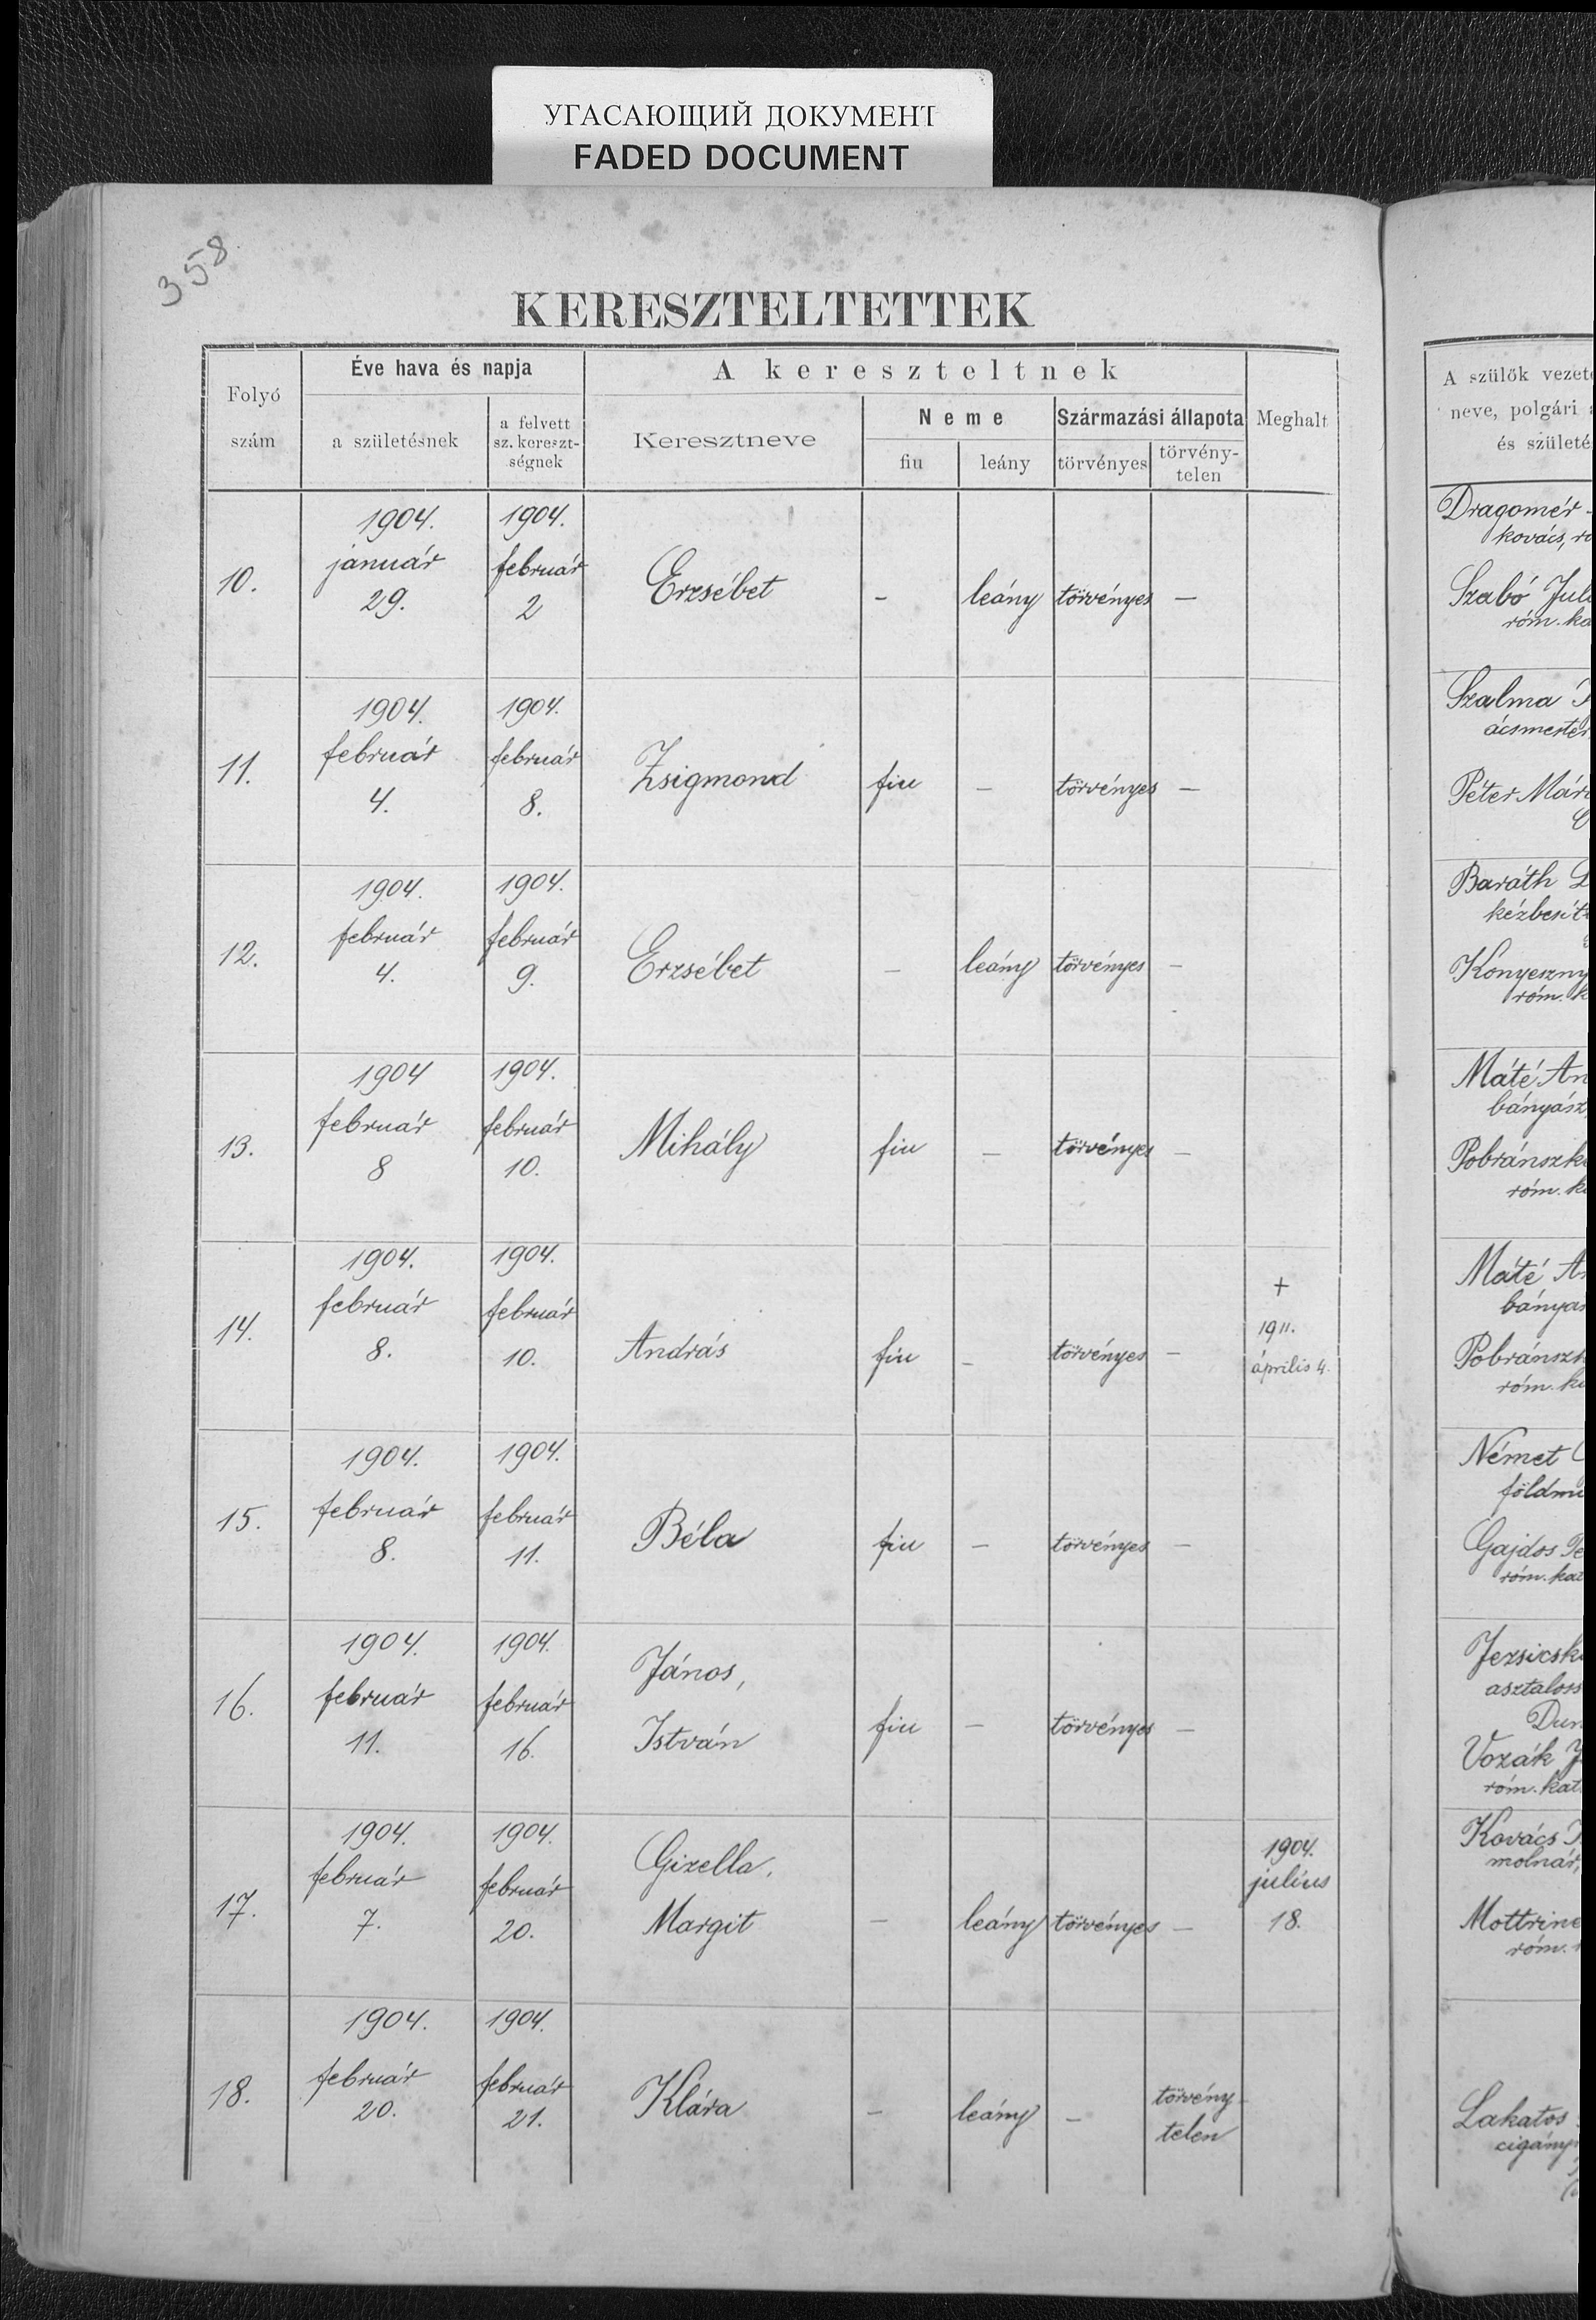 УГАСАЮЩИЙ ДОКУМЕНТ
FADED DOCUMENT
358
KERESZTELTETTEK
Folyó
szám
Éve hava és napja
a születésnek
a felvett
sz. kereszt-
ségnek
A kereszteltnek
Keresztneve
Neme
fiu
leány
Származási állapota
törvényes
törvény-
telen
Meghalt
10.
1904.
január
29.
1904.
február
2
Erzsébet
-
leány
törvényes
-
11.
1904.
február
4.
1904.
február
8.
Zsigmond
fiu
-
törvényes
-
12.
1904.
február
4.
1904.
február
9.
Erzsébet
-
leány
törvényes
-
13.
1904
február
8
1904.
február
10.
Mihály
fiu
-
törvényes
-
14.
1904.
február
8.
1904.
február
10.
András
fiu
-
törvényes
-
+
1911.
április 4.
15.
1904.
február
8.
1904.
február
11.
Béla
fiu
-
törvényes
-
16.
1904.
február
11.
1904.
február
16.
János,
István
fiu
-
törvényes
-
17.
1904.
február
7.
1904.
február
20.
Gizella,
Margit
-
leány
törvényes
-
1904.
július
18.
18.
1904.
február
20.
1904.
február
21.
Klára
-
leány
-
törvény-
telen
A szülők vezeté
neve, polgári
és születé
Dragomér
kovács, ró
Szabó Juli
róm. ka
Szalma
ácsmester
Péter Mári
Baráth
kézbesít
Könyeszny
róm. k
Máté An
bányász,
Pobránszk
róm. k
Máté A
bányas
Pobránszk
róm. ka
Német
földmű
Gajdos Te
róm. kat
Jezsicsk
asztaloss
Dun
Vozák J
róm. kat.
Kovács
molnár,
Mottrine
róm.
Lakatos
cigány